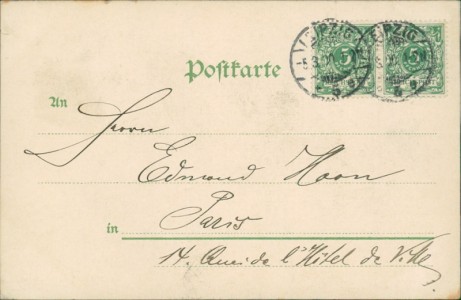 LEIPZIG LEIPZIG
5 5
Postkarte
An
Herrn
Edmond Haon
in Paris
14. Quai de l'Hôtel de Ville